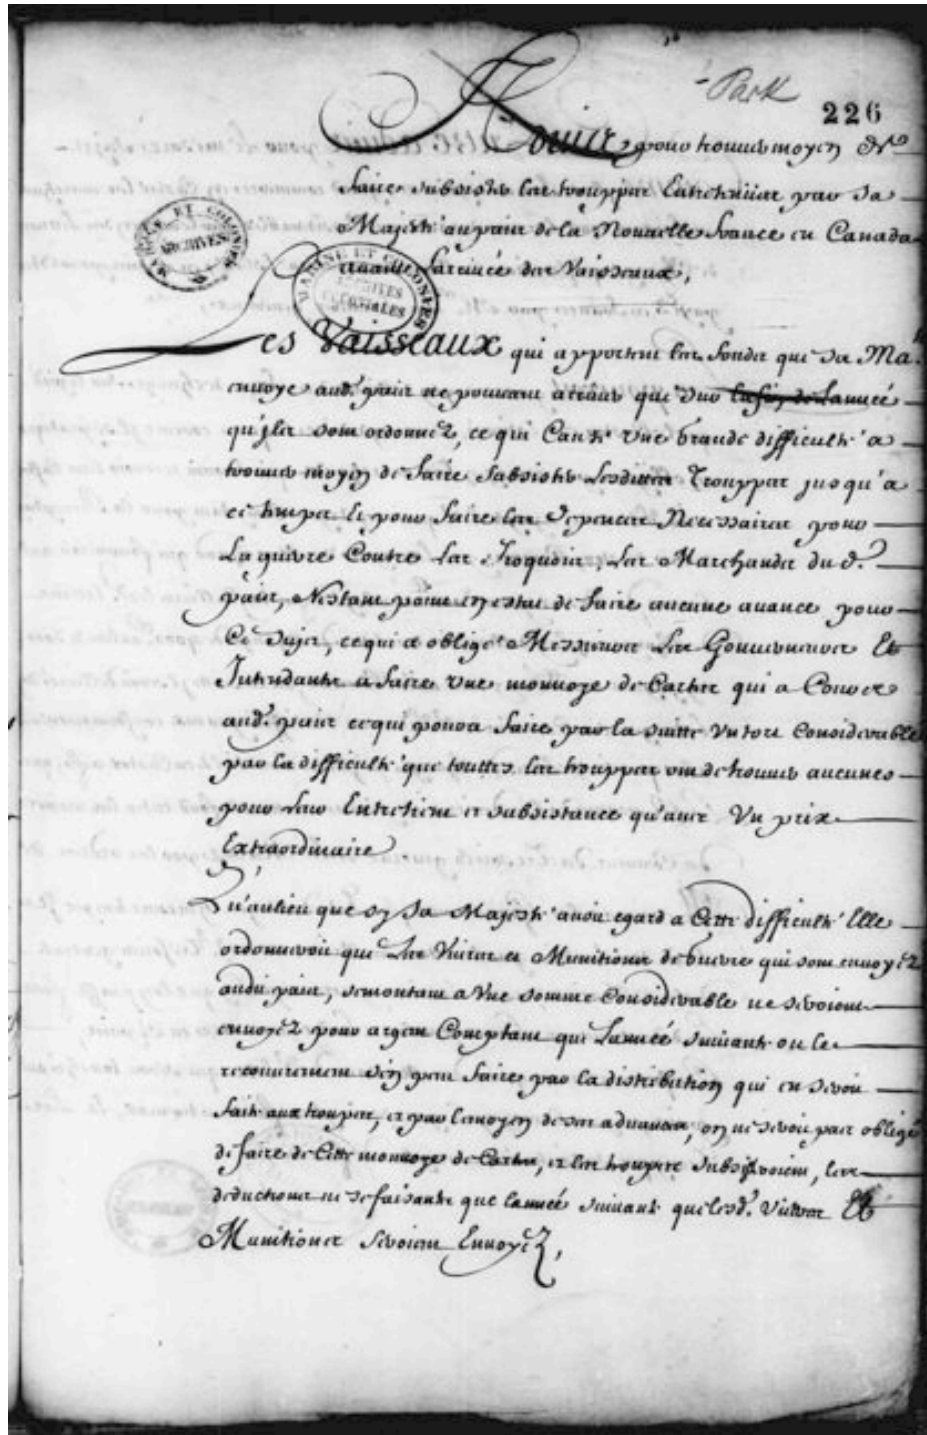 Park
226
Advis, pour trouver moyen de
faire subsister les trouppes Entretenües par Sa
Majesté au païs de la Nouvelle france en Canada
avant l'arrivée des Vaisseaux,
MARINE ET COLONIES
ARCHIVES
MARINE ET COLONIES
ARCHIVES COLONIALES
Les Vaisseaux qui apportent les fonds que Sa Ma.té
envoye aud. païs ne pouvant arriver que sur la fin de l'année
qu'jls sont ordonnez, ce qui Cause Une Grande difficulté a
trouver moyen de faire subsister Lesdittes Trouppes jusqu'a
ce temps Et pour faire les depences Necessaires pour
La guerre Contre Les Iroquois, Les Marchands du d.
païs, N'estant point en estat de faire aucune avance pour
Ce Sujet, ce qui a obligé Messieurs Les Gouverneur Et
Intendant a faire Une monnoye de Cartes qui a Cours
aud. païs ce qui poura faire par la suitte Un tort Considerable
par la difficulté que touttes les trouppes ont de trouver aucunes
pour Leur Entretien et subsistance qu'avec Un prix
Extraordinaire
Qu'aulieu que sy Sa Majesté avoit egard a Cette difficulté Elle
ordonneroit que Les Vivres et Munitions de Guerre qui sont envoyéz
audit païs, se montant a Une somme Considerable ne seroient
envoyéz pour argent Comptant que L'année suivante ou le
recouvrement s'en peut faire par la distribution qui en seroit
fait aux troupes, et par le moyen de ses advances, on ne seroit pas obligé
de faire de Cette monnoye de Cartes, et les troupes subsisteroient, les
deductions ne se faisante que l'année suivante que lesd. Vivres Et
Munitions seroient Envoyéz,